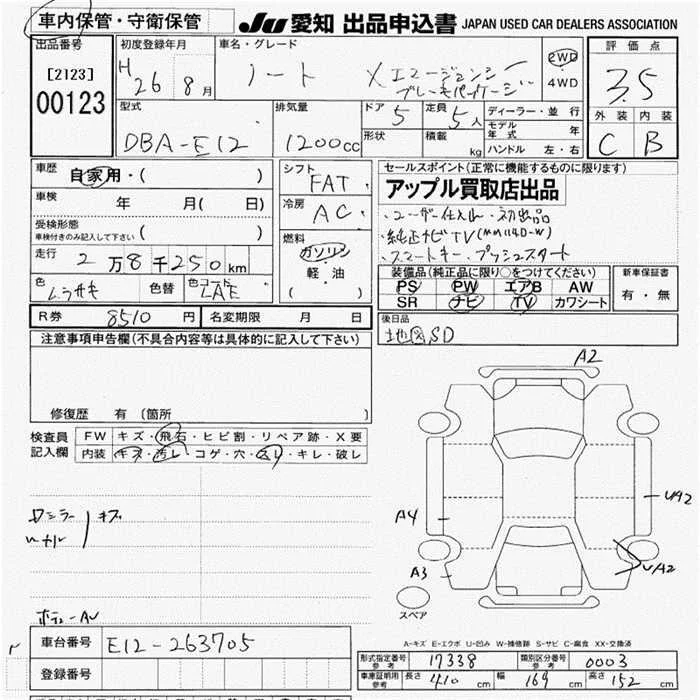 車内保管・守衛保管
JU 愛知 出品申込書 JAPAN USED CAR DEALERS ASSOCIATION
出品番号
[2123]
00123
初度登録年月
H 26 8月
車名・グレード
ノート X エマージェンシー
ブレーキパッケージ
2WD
4WD
評価点
3.5
外装 内装
C B
型式
DBA-E12
排気量
1200cc
ドア 5
形状
定員 5人
積載 kg
ディーラー・並行
モデル年式 年
ハンドル 左・右
車歴
自家用・( )
車検 年 月( 日)
受検形態
車検付きのみ記入して下さい ( )
走行 2万8千250km
色 ムラサキ 色替 色コード LAE
シフト
FAT
冷房
AC
燃料
ガソリン
軽・油
( )
セールスポイント(正常に機能するものに限ります)
アップル買取店出品
・ユーザー仕入れ・初出品
・純正ナビTV(MM114D-W)
・スマートキー・プッシュスタート
装備品(純正品に限り○をつけてください)
PS PW エアB AW
SR ナビ TV カワシート
新車保証書
有・無
R券 8510円 名変期限 月 日
後日品
地図SD
注意事項申告欄(不具合内容等は具体的に記入して下さい)
修復歴 有(箇所 )
検査員記入欄
FW キズ・飛石・ヒビ割・リペア跡・X要
内装 キズ・汚レ・コゲ・穴・スレ・キレ・破レ
A2
A4
A3
UA2
UA2
スペア
ミラー
キズ
A-キズ E-エクボ U-凹み W-補修跡 S-サビ C-腐食 XX-交換済
車台番号 E12-263705
登録番号
形式指定番号 参考 17338 類別区分番号 参考 0003
車庫証明用 参考 長さ 410cm 幅 169cm 高さ 152cm